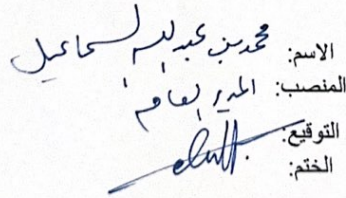 الاسم: محمد بن عبد الله السماعيل
المنصب: المدير العام
التوقيع:
الختم: